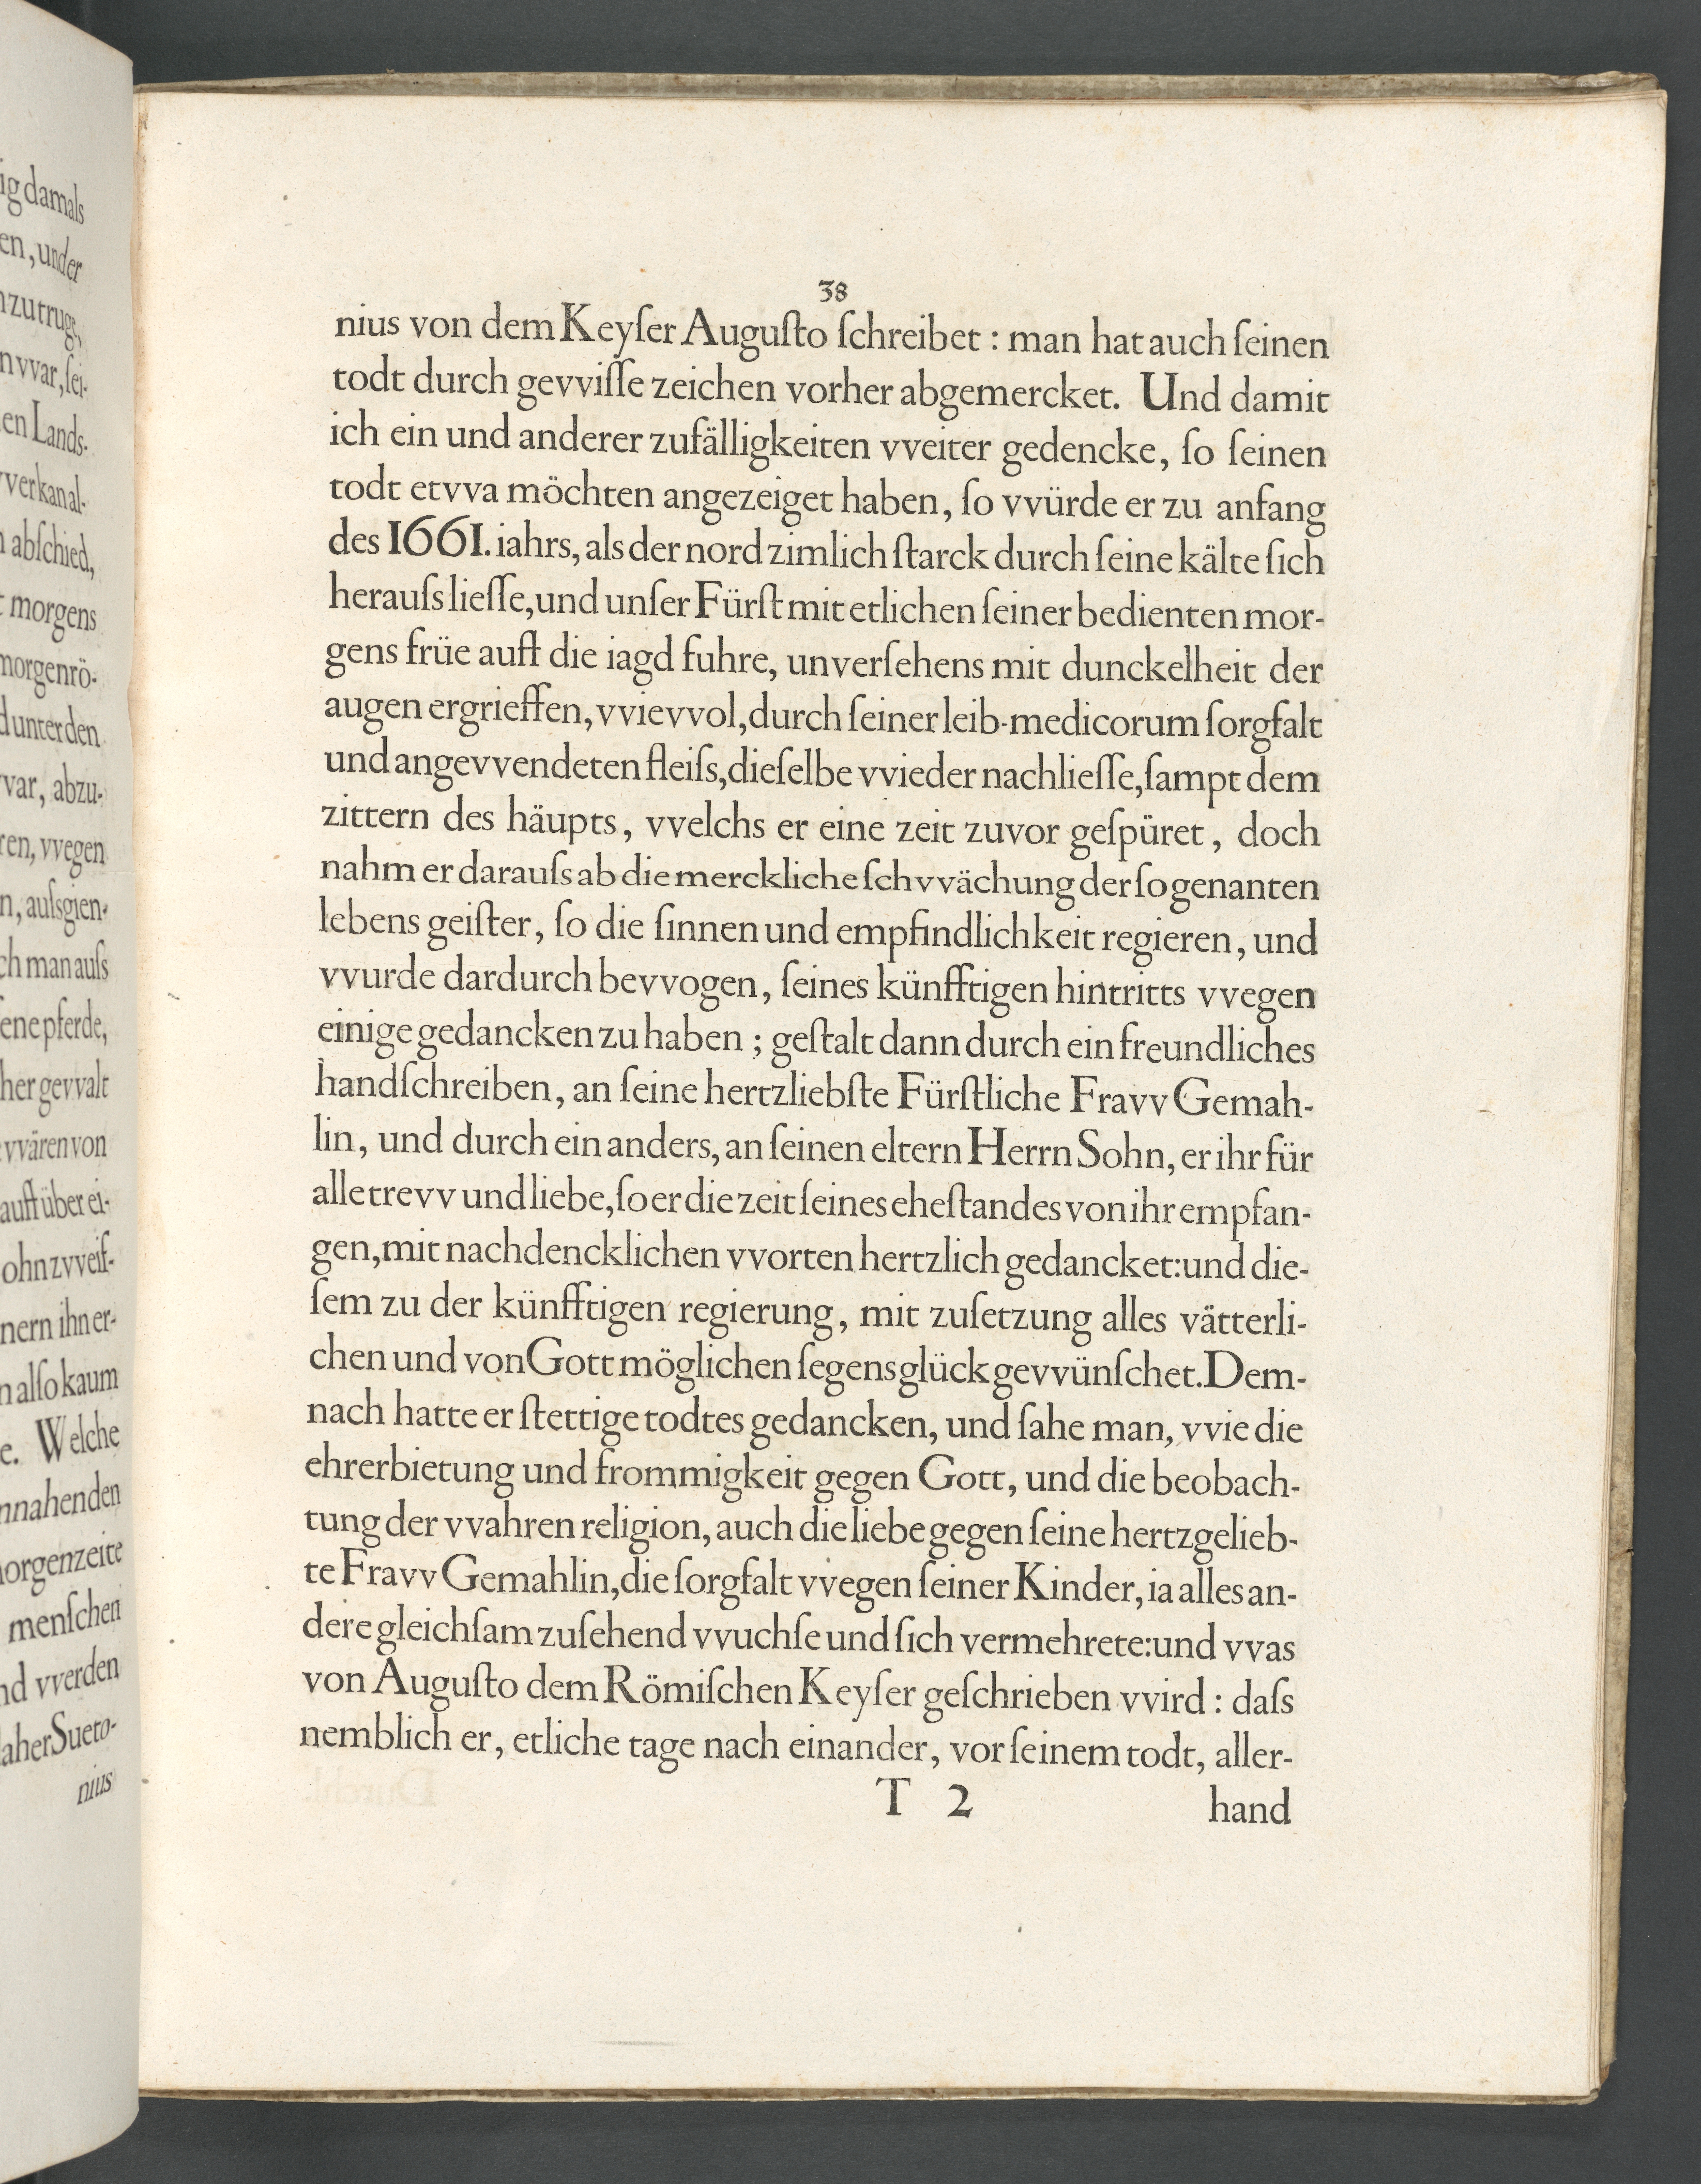 ig damals
en, under
nzutruge,
n vvar, ſei-
en Lands-
vverkanal-
abſchied,
morgens
morgenrö-
d unter den
var, abzu-
ren, vvegen
n, auſsgien-
ch man auſs
ene pferde,
her gevvalt
vvären von
auff über ei-
ohn zvveif-
nern ihn er-
n alſo kaum
e. Welche
nnahenden
orgenzeite
menſchen
nd vverden
aher Sueto-
nius
38
nius von dem Keyſer Auguſto ſchreibet : man hat auch ſeinen
todt durch gevviſſe zeichen vorher abgemercket. Und damit
ich ein und anderer zufälligkeiten vveiter gedencke, ſo ſeinen
todt etvva möchten angezeiget haben, ſo vvürde er zu anfang
des 1661. iahrs, als der nord zimlich ſtarck durch ſeine kälte ſich
herauſs lieſſe, und unſer Fürſt mit etlichen ſeiner bedienten mor-
gens früe auff die iagd fuhre, unverſehens mit dunckelheit der
augen ergrieffen, vvievvol, durch ſeiner leib-medicorum ſorgfalt
und angevvendeten fleiſs, dieſelbe vvieder nachlieſſe, ſampt dem
zittern des häupts, vvelchs er eine zeit zuvor geſpüret, doch
nahm er darauſs ab die merckliche ſchvvächung der ſo genanten
lebens geiſter, ſo die ſinnen und empfindlichkeit regieren, und
vvurde dardurch bevvogen, ſeines künfftigen hintritts vvegen
einige gedancken zu haben ; geſtalt dann durch ein freundliches
handſchreiben, an ſeine hertzliebſte Fürſtliche Fravv Gemah-
lin, und durch ein anders, an ſeinen eltern Herrn Sohn, er ihr für
alle trevv und liebe, ſo er die zeit ſeines eheſtandes von ihr empfan-
gen, mit nachdencklichen vvorten hertzlich gedancket: und die-
ſem zu der künfftigen regierung, mit zuſetzung alles vätterli-
chen und von Gott möglichen ſegens glück gevvünſchet. Dem-
nach hatte er ſtettige todtes gedancken, und ſahe man, vvie die
ehrerbietung und frommigkeit gegen Gott, und die beobach-
tung der vvahren religion, auch die liebe gegen ſeine hertzgelieb-
te Fravv Gemahlin, die ſorgfalt vvegen ſeiner Kinder, ia alles an-
dere gleichſam zuſehend vvuchſe und ſich vermehrete: und vvas
von Auguſto dem Römiſchen Keyſer geſchrieben vvird : daſs
nemblich er, etliche tage nach einander, vor ſeinem todt, aller-
T 2 hand